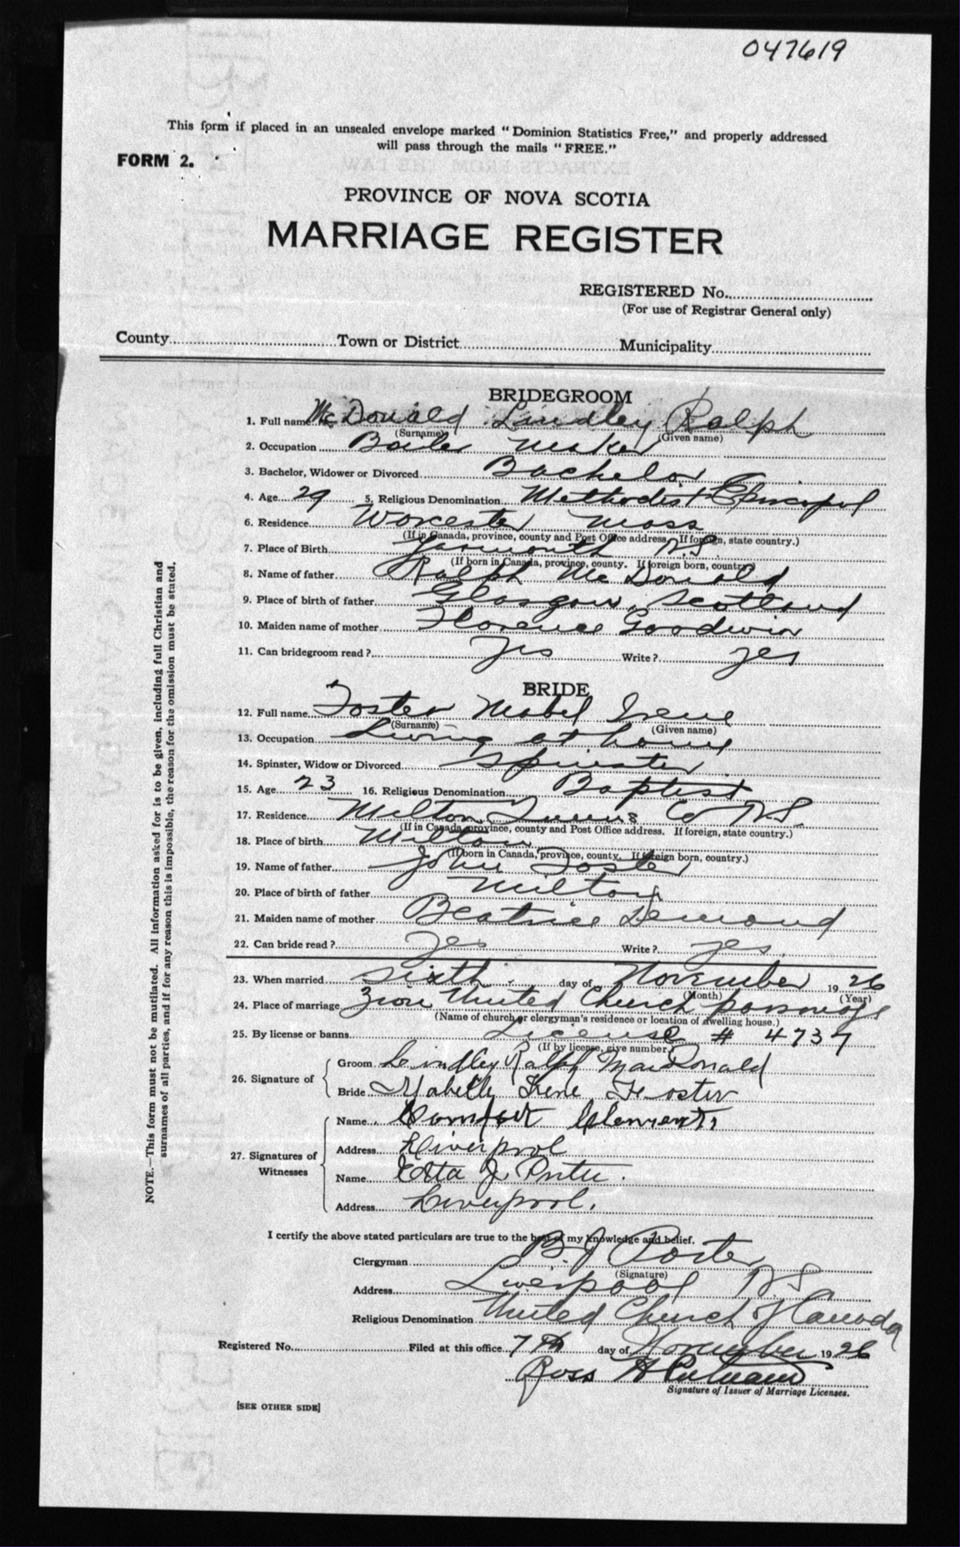 047619
This form if placed in an unsealed envelope marked "Dominion Statistics Free," and properly addressed
will pass through the mails "FREE."
FORM 2.
PROVINCE OF NOVA SCOTIA
MARRIAGE REGISTER
REGISTERED No.
(For use of Registrar General only)
County Town or District Municipality
BRIDEGROOM
1. Full name McDonald Lindley Ralph
(Surname) (Given name)
2. Occupation Boiler Maker
3. Bachelor, Widower or Divorced Bachelor
4. Age 29 5. Religious Denomination Methodist Episcopal
6. Residence Worcester Mass
(If in Canada, province, county and Post Office address. If foreign, state country.)
7. Place of Birth Yarmouth N.S.
(If born in Canada, province, county. If foreign born, country.)
8. Name of father Ralph McDonald
9. Place of birth of father Glasgow, Scotland
10. Maiden name of mother Florence Goodwin
11. Can bridegroom read? Yes Write? yes
BRIDE
12. Full name Foster Mabel Irene
(Surname) (Given name)
13. Occupation Living at home
14. Spinster, Widow or Divorced Spinster
15. Age 23 16. Religious Denomination Baptist
17. Residence Milton Queens Co N.S.
(If in Canada, province, county and Post Office address. If foreign, state country.)
18. Place of birth Milton
(If born in Canada, province, county. If foreign born, country.)
19. Name of father John Foster
20. Place of birth of father Milton
21. Maiden name of mother Beatrice Demond
22. Can bride read? yes Write? yes
23. When married sixth day of November 1926
(Month) (Year)
24. Place of marriage Zion United Church parsonage
(Name of church or clergyman's residence or location of dwelling house.)
25. By license or banns License # 4737
(If by license, give number.)
26. Signature of Groom Lindley Ralph MacDonald
Bride Mabelle Irene Foster
27. Signatures of Witnesses Name Clements
Address Liverpool
Name Etta J Porter.
Address Liverpool.
I certify the above stated particulars are true to the best of my knowledge and belief.
Clergyman B J Porter
(Signature)
Address Liverpool N S
Religious Denomination United Church of Canada
Registered No. Filed at this office 7th day of November 1926
Ross H
Signature of Issuer of Marriage Licenses.
[SEE OTHER SIDE]
NOTE.—This form must not be mutilated. All information asked for is to be given, including full Christian and
surnames of all parties, and if for any reason this is impossible, the reason for the omission must be stated.